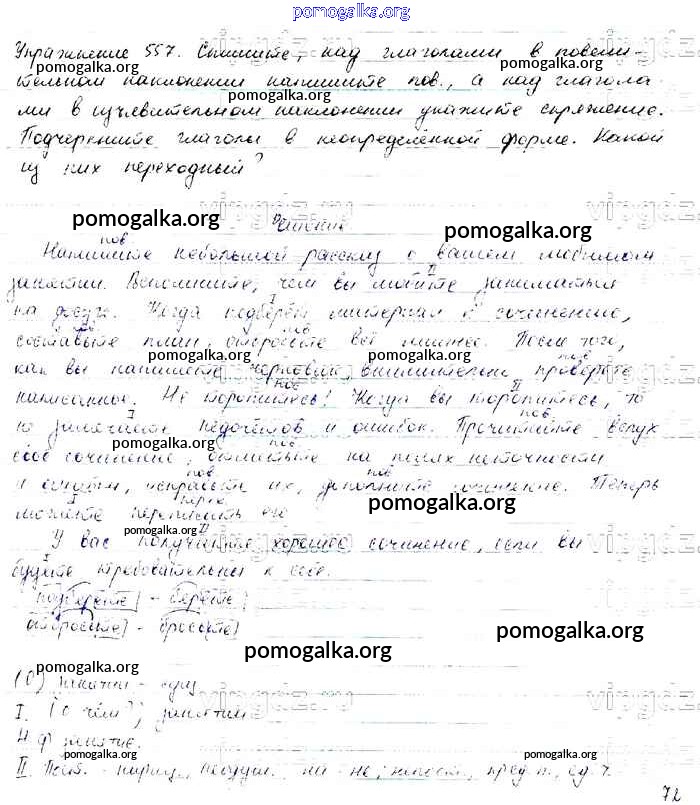 pomogalka.org
Упражнение 557. Спишите, над глаголами в повели-
pomogalka.org
тельном наклонении напишите пов., а над глагола-
pomogalka.org
ми в изъявительном наклонении укажите спряжение.
Подчеркните глаголы в неопределённой форме. Какой
из них переходный?
vipgdz
pomogalka.org
Решение
pomogalka.org
пов
Напишите небольшой рассказ о вашем любимом
II
занятии. Вспомните, чем вы любите заниматься
I
на досуге. Когда подберёте материал к сочинению,
пов
составьте план, отбросьте всё лишнее. После того,
pomogalka.org pomogalka.org
пов
как вы напишете черновик, внимательно проверьте
пов II
написанное. Не торопитесь! Когда вы торопитесь, то
I пов
не замечаете недочётов и ошибок. Прочитайте вслух
pomogalka.org
пов
своё сочинение, отметьте на полях неточности
пов пов
и исправьте их, дополните сочинение. Теперь
pomogalka.org
I перех
можете переписать его
pomogalka.org
II
У вас получится хорошее сочинение, если вы
I
будете требовательны к себе.
подберёте - берёте
отбросьте - бросьте
pomogalka.org
pomogalka.org
pomogalka.org
vipgdz
I. (о чём?) занятии
Н.ф занятие.
II. Пост. - нариц., неодуш.
pomogalka.org pomogalka.org
72